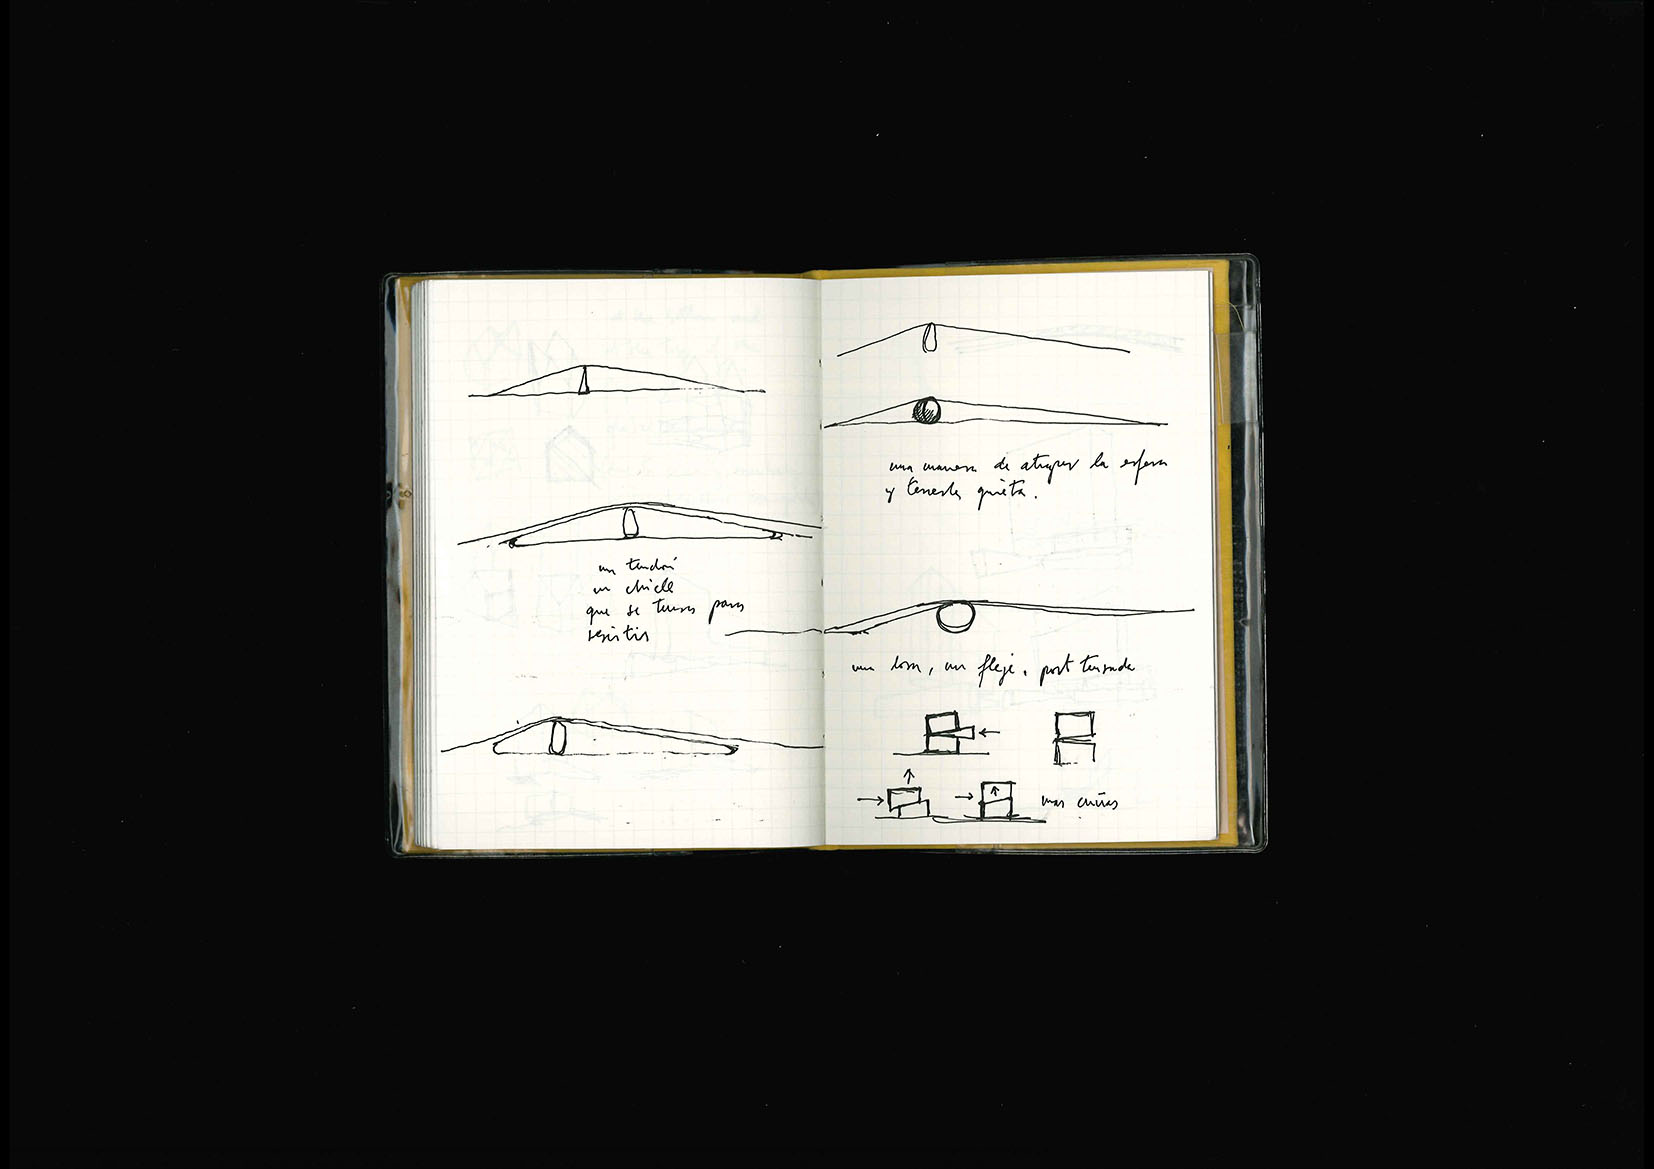 un tendón
un chicle
que se tensa para
resistir
una manera de atrapar la esfera
y tenerla quieta.
una losa, un fleje, post tensada
unas cuñas